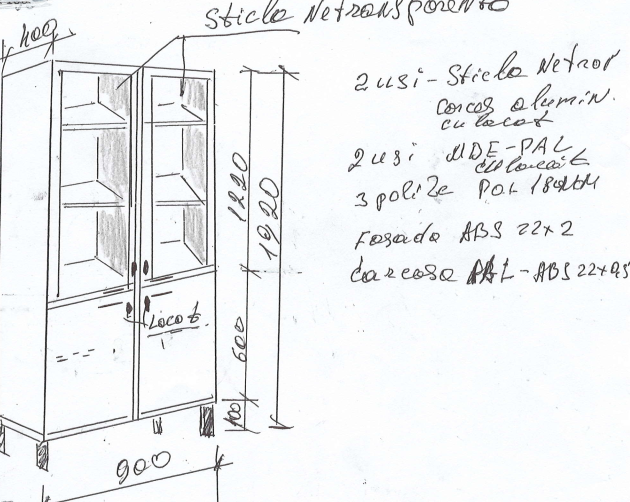 400
Sticla Netransparenta
2 usi - Sticla Netror
carcas alumin.
cu lacat
2 usi MDE-PAL
cu laccit
3 polițe PAL 18MM
Fasada ABS 22x2
Carcasa PAL-ABS 22x0,5
1220
1920
Lacat
600
100
900